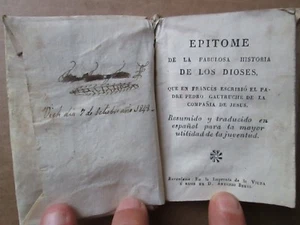 Vich dia 7 de
EPITOME
DE LA FABULOSA HISTORIA
DE LOS DIOSES,
QUE EN FRANCES ESCRIBIÓ EL PA-
DRE PEDRO GAUTRUCHE DE LA
COMPAÑIA DE JESUS.
Resumido y traducido en
español para la mayor
utilidad de la juventud.
Barcelona: En la Imprenta de la VIUDA